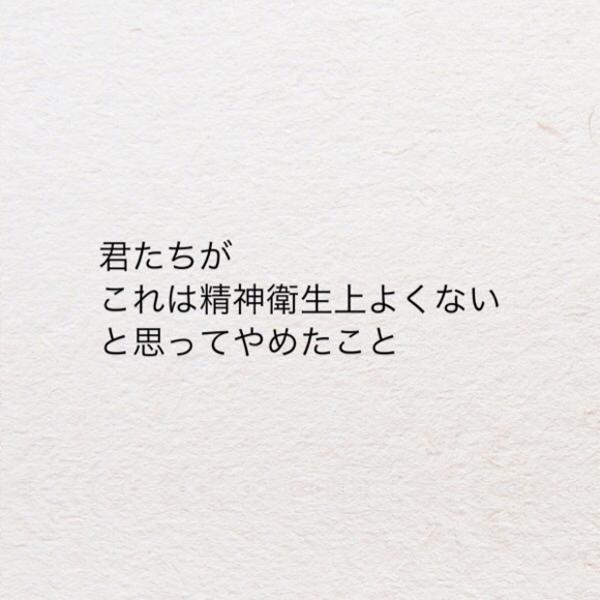 君たちが
これは精神衛生上よくない
と思ってやめたこと